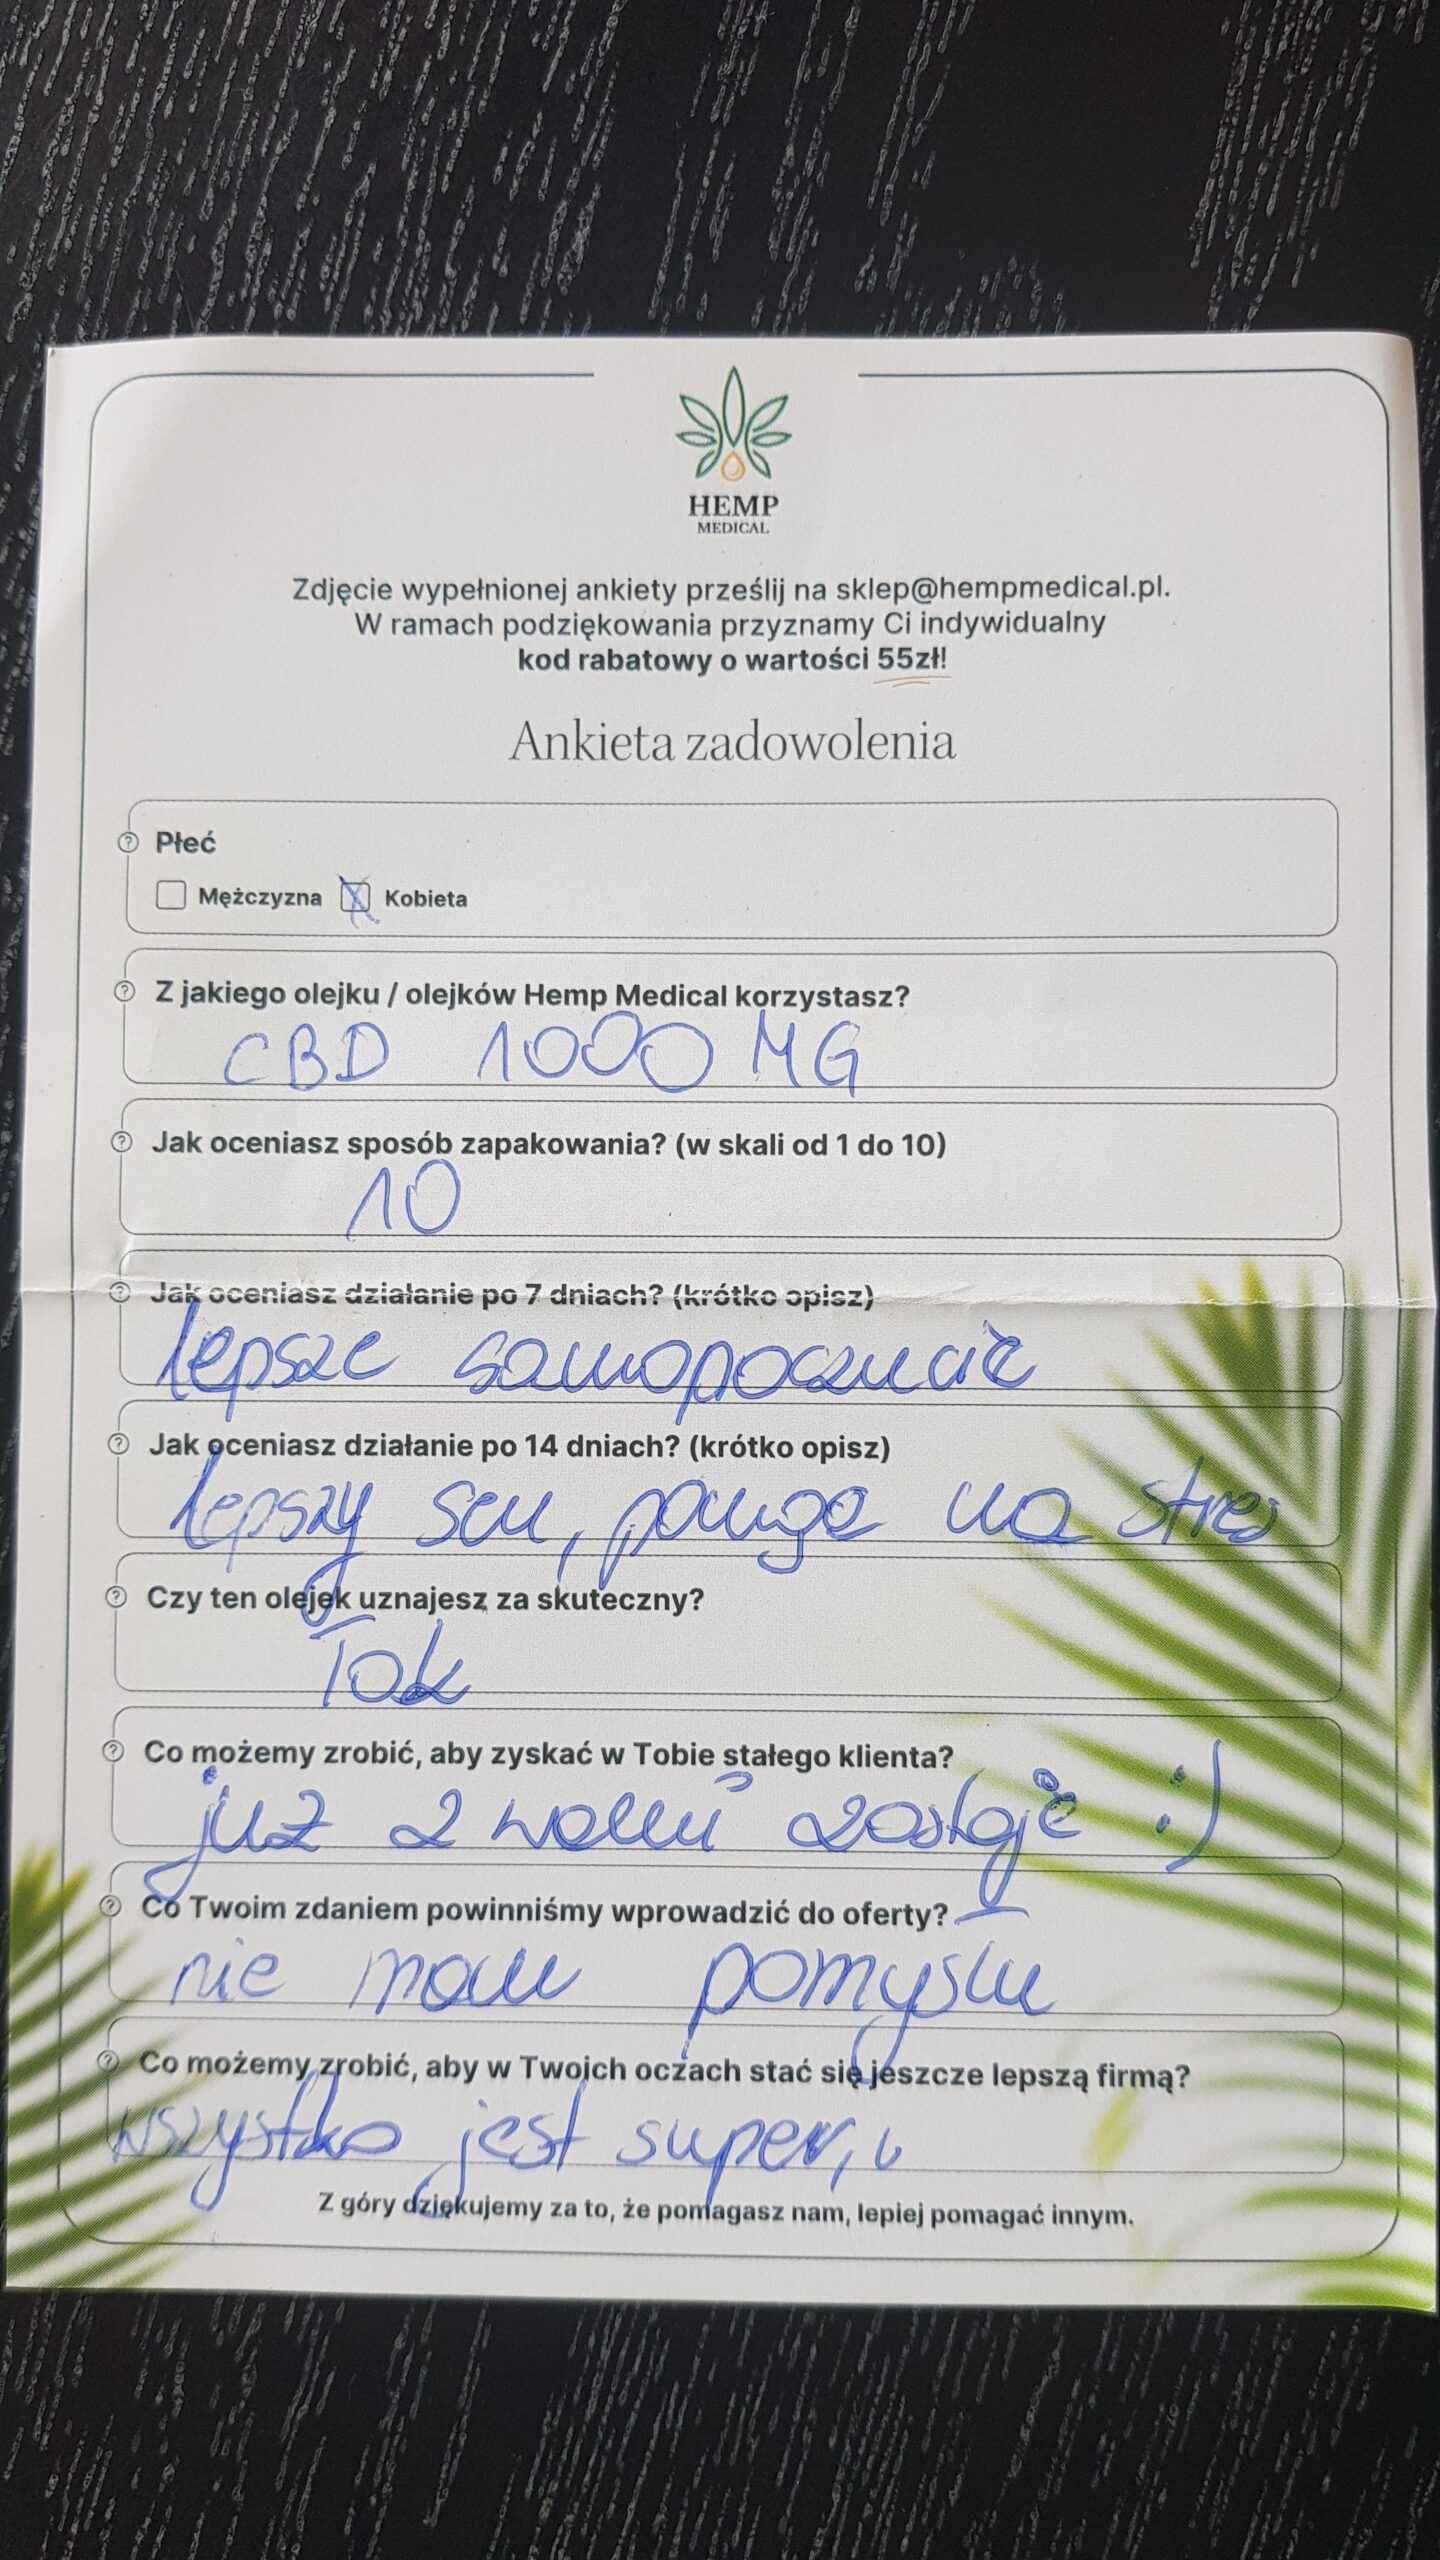 HEMP
MEDICAL
Zdjęcie wypełnionej ankiety prześlij na sklep@hempmedical.pl.
W ramach podziękowania przyznamy Ci indywidualny
kod rabatowy o wartości 55zł!
Ankieta zadowolenia
Płeć
Mężczyzna X Kobieta
Z jakiego olejku / olejków Hemp Medical korzystasz?
CBD 1000 MG
Jak oceniasz sposób zapakowania? (w skali od 1 do 10)
10
Jak oceniasz działanie po 7 dniach? (krótko opisz)
lepsze samopoczucie
Jak oceniasz działanie po 14 dniach? (krótko opisz)
lepszy sen, pomaga na stres
Czy ten olejek uznajesz za skuteczny?
Tak
Co możemy zrobić, aby zyskać w Tobie stałego klienta?
już z wami zostaję :)
Co Twoim zdaniem powinniśmy wprowadzić do oferty?
nie mam pomysłu
Co możemy zrobić, aby w Twoich oczach stać się jeszcze lepszą firmą?
wszystko jest super,
Z góry dziękujemy za to, że pomagasz nam, lepiej pomagać innym.